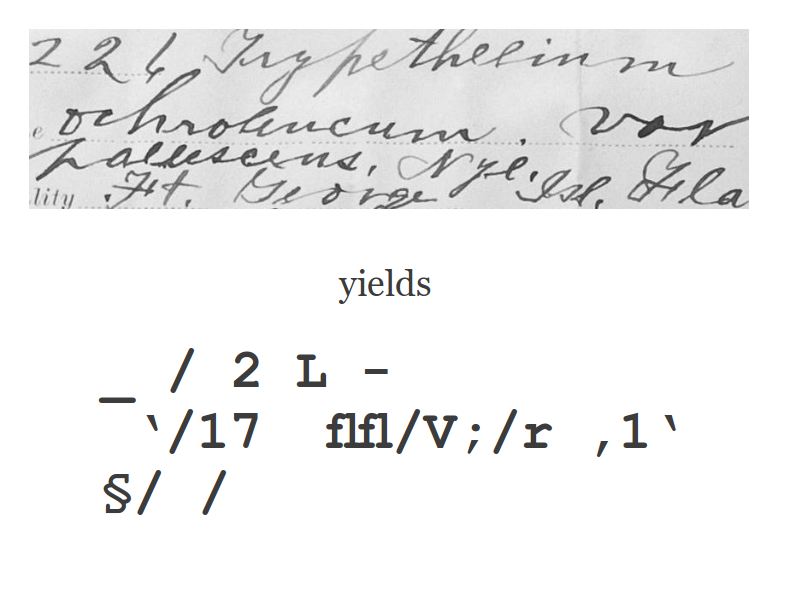 226 Trypethelium
e ochroleucum. var
pallescens, Nyl.
lity Ft. George Isl. Fla
yields
_ / 2 L -
‘/17 flfl/V;/r ,1‘
§/ /